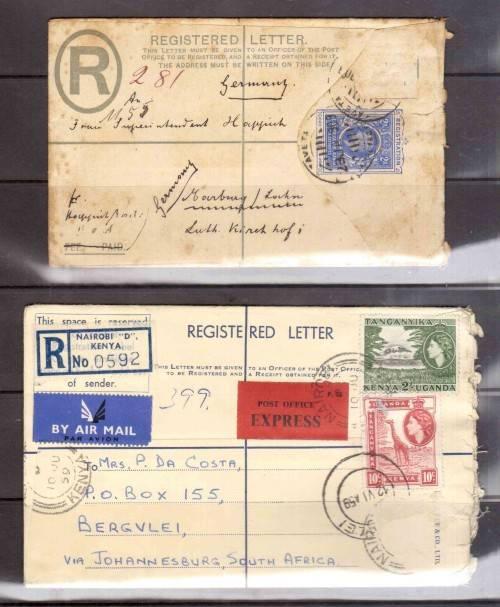 REGISTERED LETTER.
THIS LETTER MUST BE GIVEN TO AN OFFICER OF THE POST
OFFICE TO BE REGISTERED AND A RECEIPT OBTAINED FOR IT.
THE ADDRESS MUST BE WRITTEN ON THIS SIDE.
R
281
Germany
Frau Superintendent Happich
REGISTRATION
TAVETA
Germany
Marburg / Lahn
Luth. Kirchhof 1
FEE PAID
This space is reserved
R
NAIROBI "D",
KENYA.
No 0592
of sender.
REGISTERED LETTER
THIS LETTER MUST BE GIVEN
TO BE REGISTERED AND A RECEIPT OBTAINED FOR IT.
TANGANYIKA
KENYA 2/- UGANDA
BY AIR MAIL
PAR AVION
399.
POST OFFICE
EXPRESS
UGANDA
TANGANYIKA
10/-
KENYA
KENYA
To
MRS. P. DA COSTA,
P.O. BOX 155,
BERGVLEI,
VIA JOHANNESBURG, SOUTH AFRICA.
& CO., LTD.